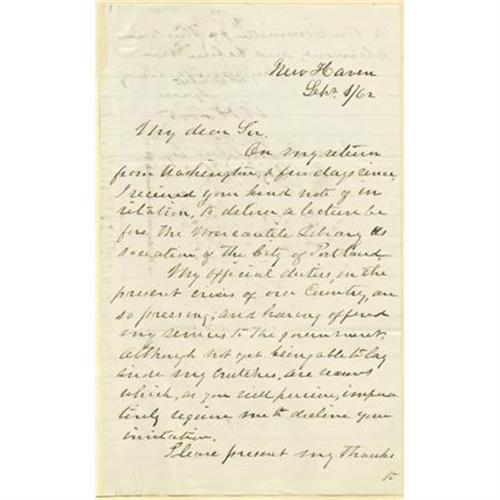 New Haven
Sept. 8/62
My dear Sir.
On my return
from Washington, a few days since,
I received your kind note of in
vitation, to deliver a lecture be
fore the "Mercantile Library As
sociation" of the City of Portland.
My official duties, in the
present crisis of our Country, are
so pressing; and having offered
my services to the government,
although not yet being able to lay
aside my crutches, are reasons
which, as you will perceive, impera
tively require me to decline your
invitation.
Please present my thanks
to